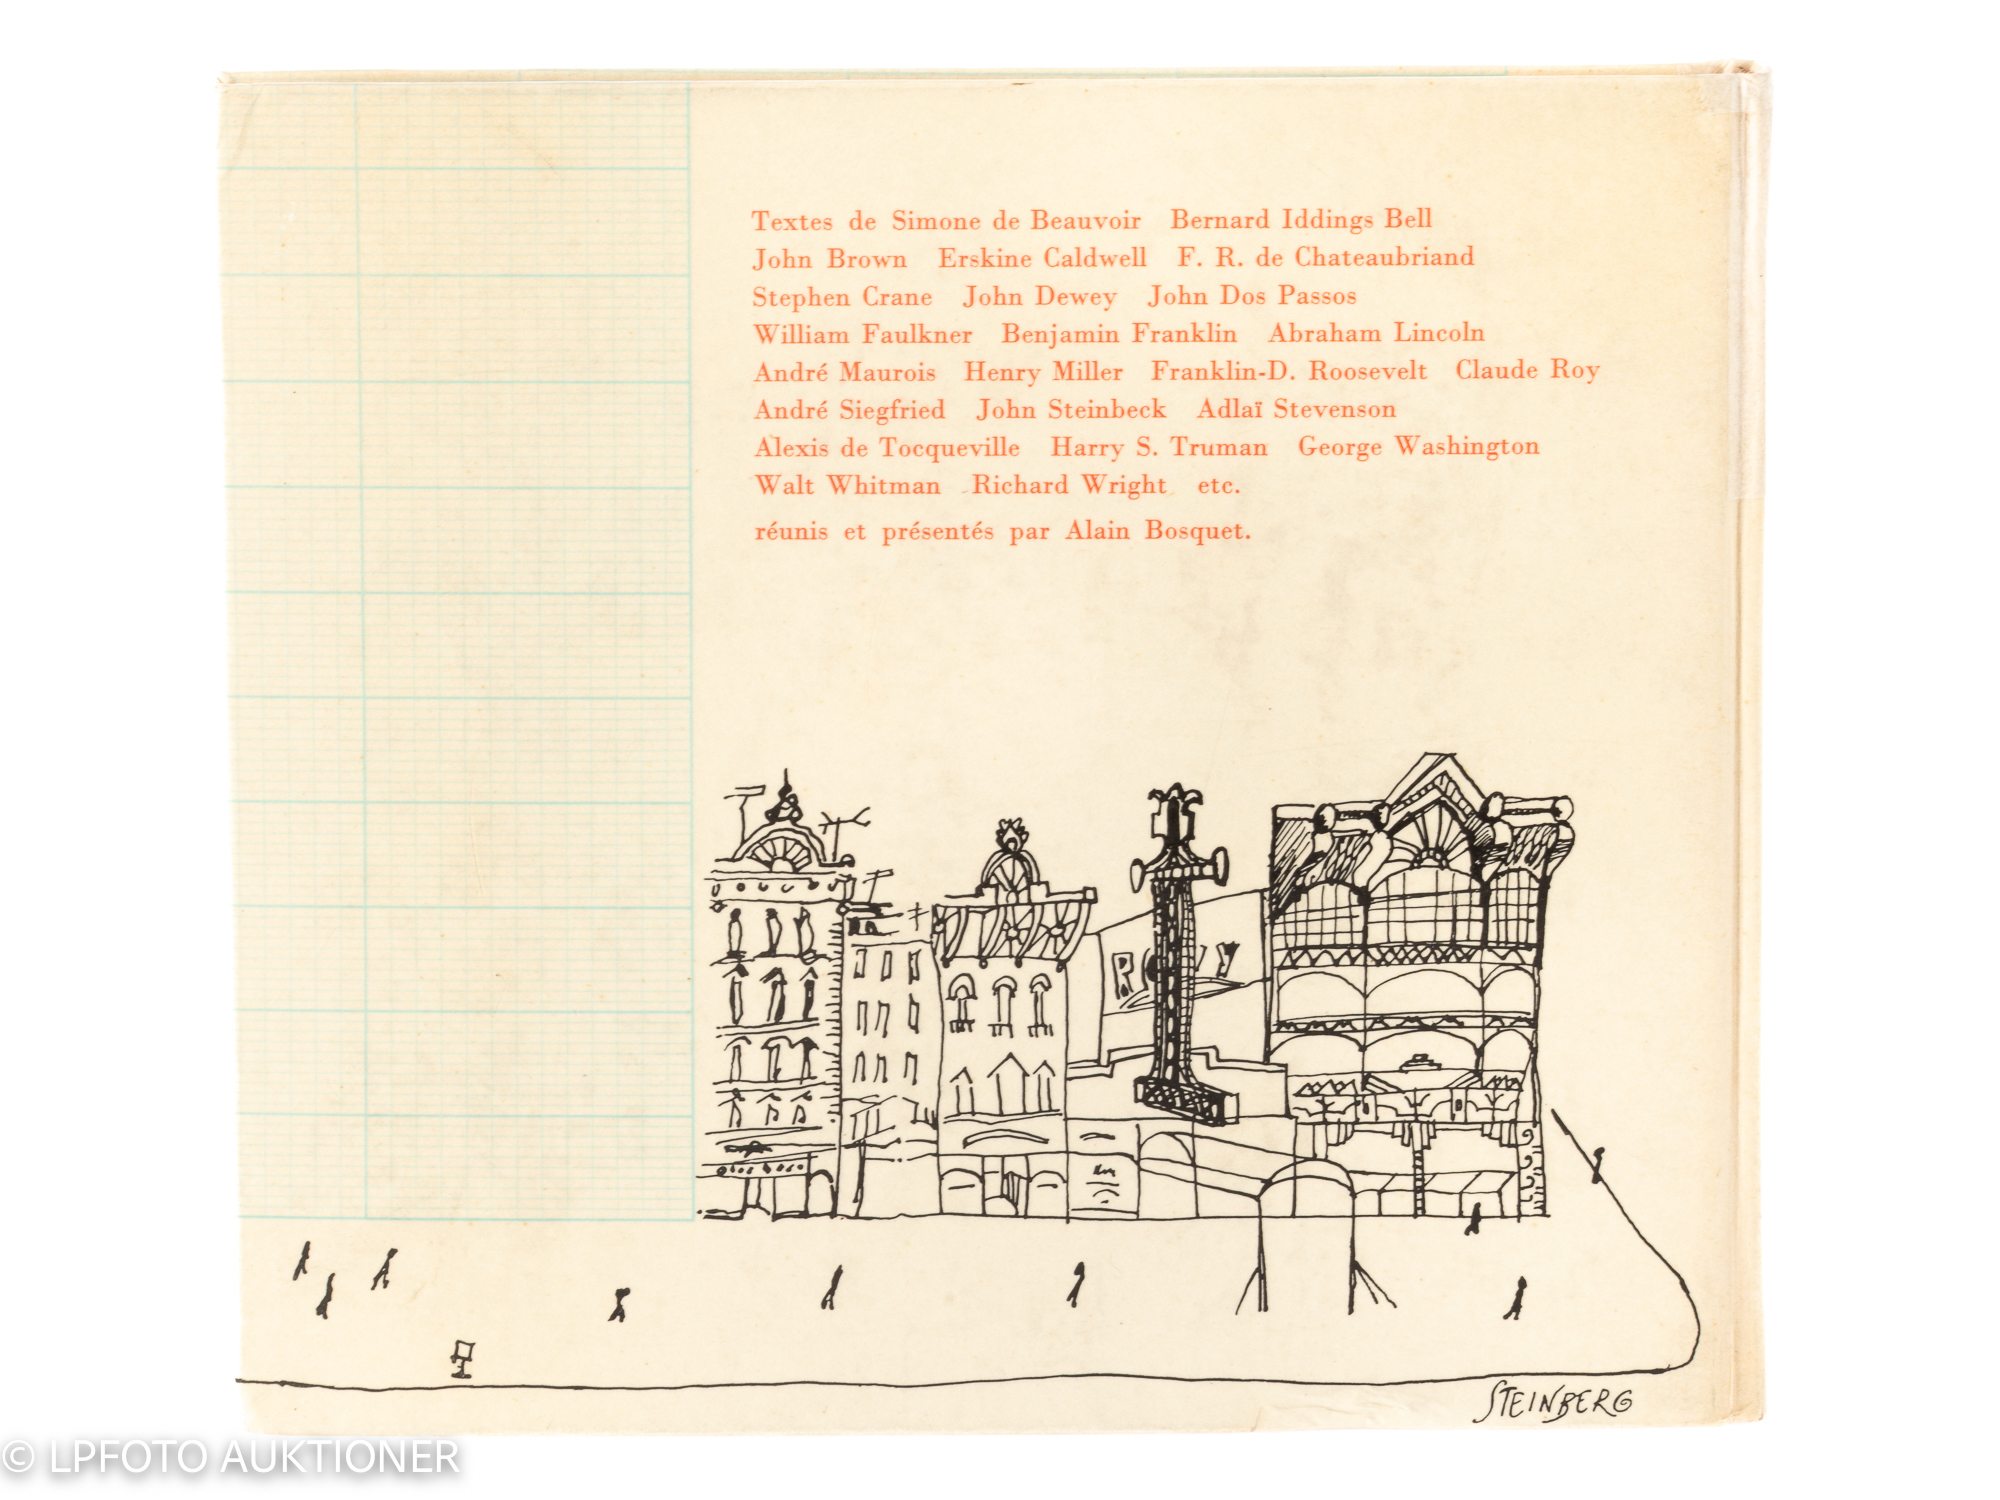 Textes de Simone de Beauvoir Bernard Iddings Bell
John Brown Erskine Caldwell F. R. de Chateaubriand
Stephen Crane John Dewey John Dos Passos
William Faulkner Benjamin Franklin Abraham Lincoln
André Maurois Henry Miller Franklin-D. Roosevelt Claude Roy
André Siegfried John Steinbeck Adlaï Stevenson
Alexis de Tocqueville Harry S. Truman George Washington
Walt Whitman Richard Wright etc.
réunis et présentés par Alain Bosquet.
STEINBERG
© LPFOTO AUKTIONER